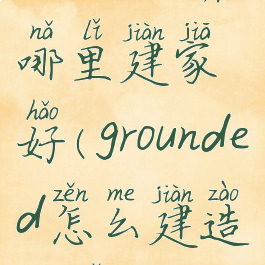 nǎ lǐ jiàn jiā
哪里建家
hǎo
好(grounde
zěn me jiàn zào
d怎么建造